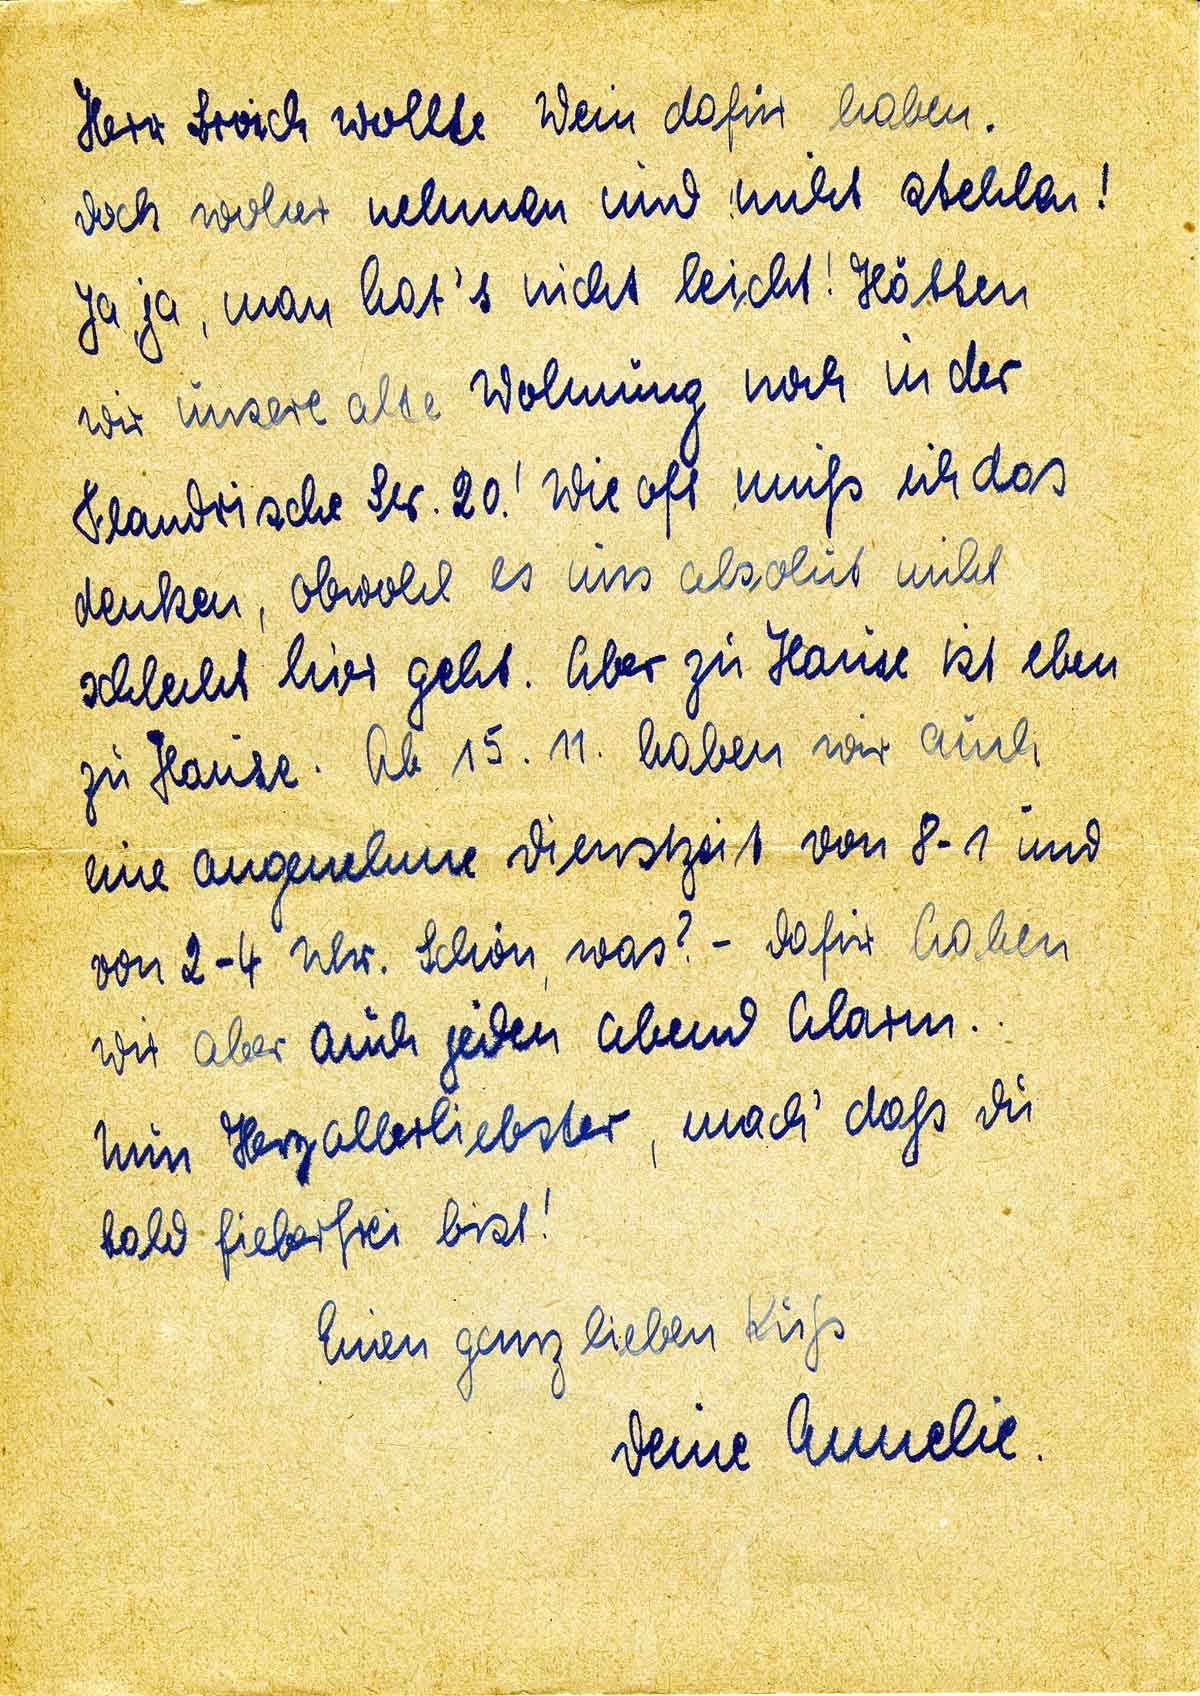 Herr Broich wollte Wein dafür haben.
Doch woher nehmen und nicht stehlen!
Ja, ja, man hat's nicht leicht! Hätten
wir unsere alte Wohnung noch in der
Flandrische Str. 20! Wie oft muß ich das
denken, obwohl es uns absolut nicht
schlecht hier geht. Aber zu Hause ist eben
zu Hause. Ab 15. 11. haben wir auch
eine angenehme Dienstzeit von 8-1 und
von 2-4 Uhr. Schön, was? - Dafür haben
wir aber auch jeden Abend Alarm..
Nun Herzallerliebster, mach' daß Du
bald fieberfrei bist!
Einen ganz lieben Kuß
Deine Annelie.